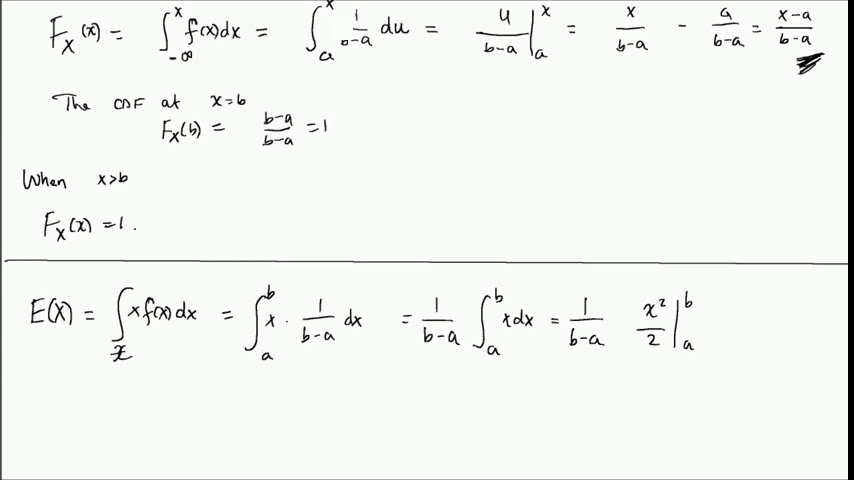 F_X(x) = ∫_{-∞}^{x} f(x)dx = ∫_{a}^{x} 1/(b-a) du = u/(b-a) |_{a}^{x} = x/(b-a) - a/(b-a) = (x-a)/(b-a)
The CDF at x=b
F_X(b) = (b-a)/(b-a) = 1
When x>b
F_X(x) = 1.
E(X) = ∫_{x} x f(x) dx = ∫_{a}^{b} x · 1/(b-a) dx = 1/(b-a) ∫_{a}^{b} x dx = 1/(b-a) x²/2 |_{a}^{b}